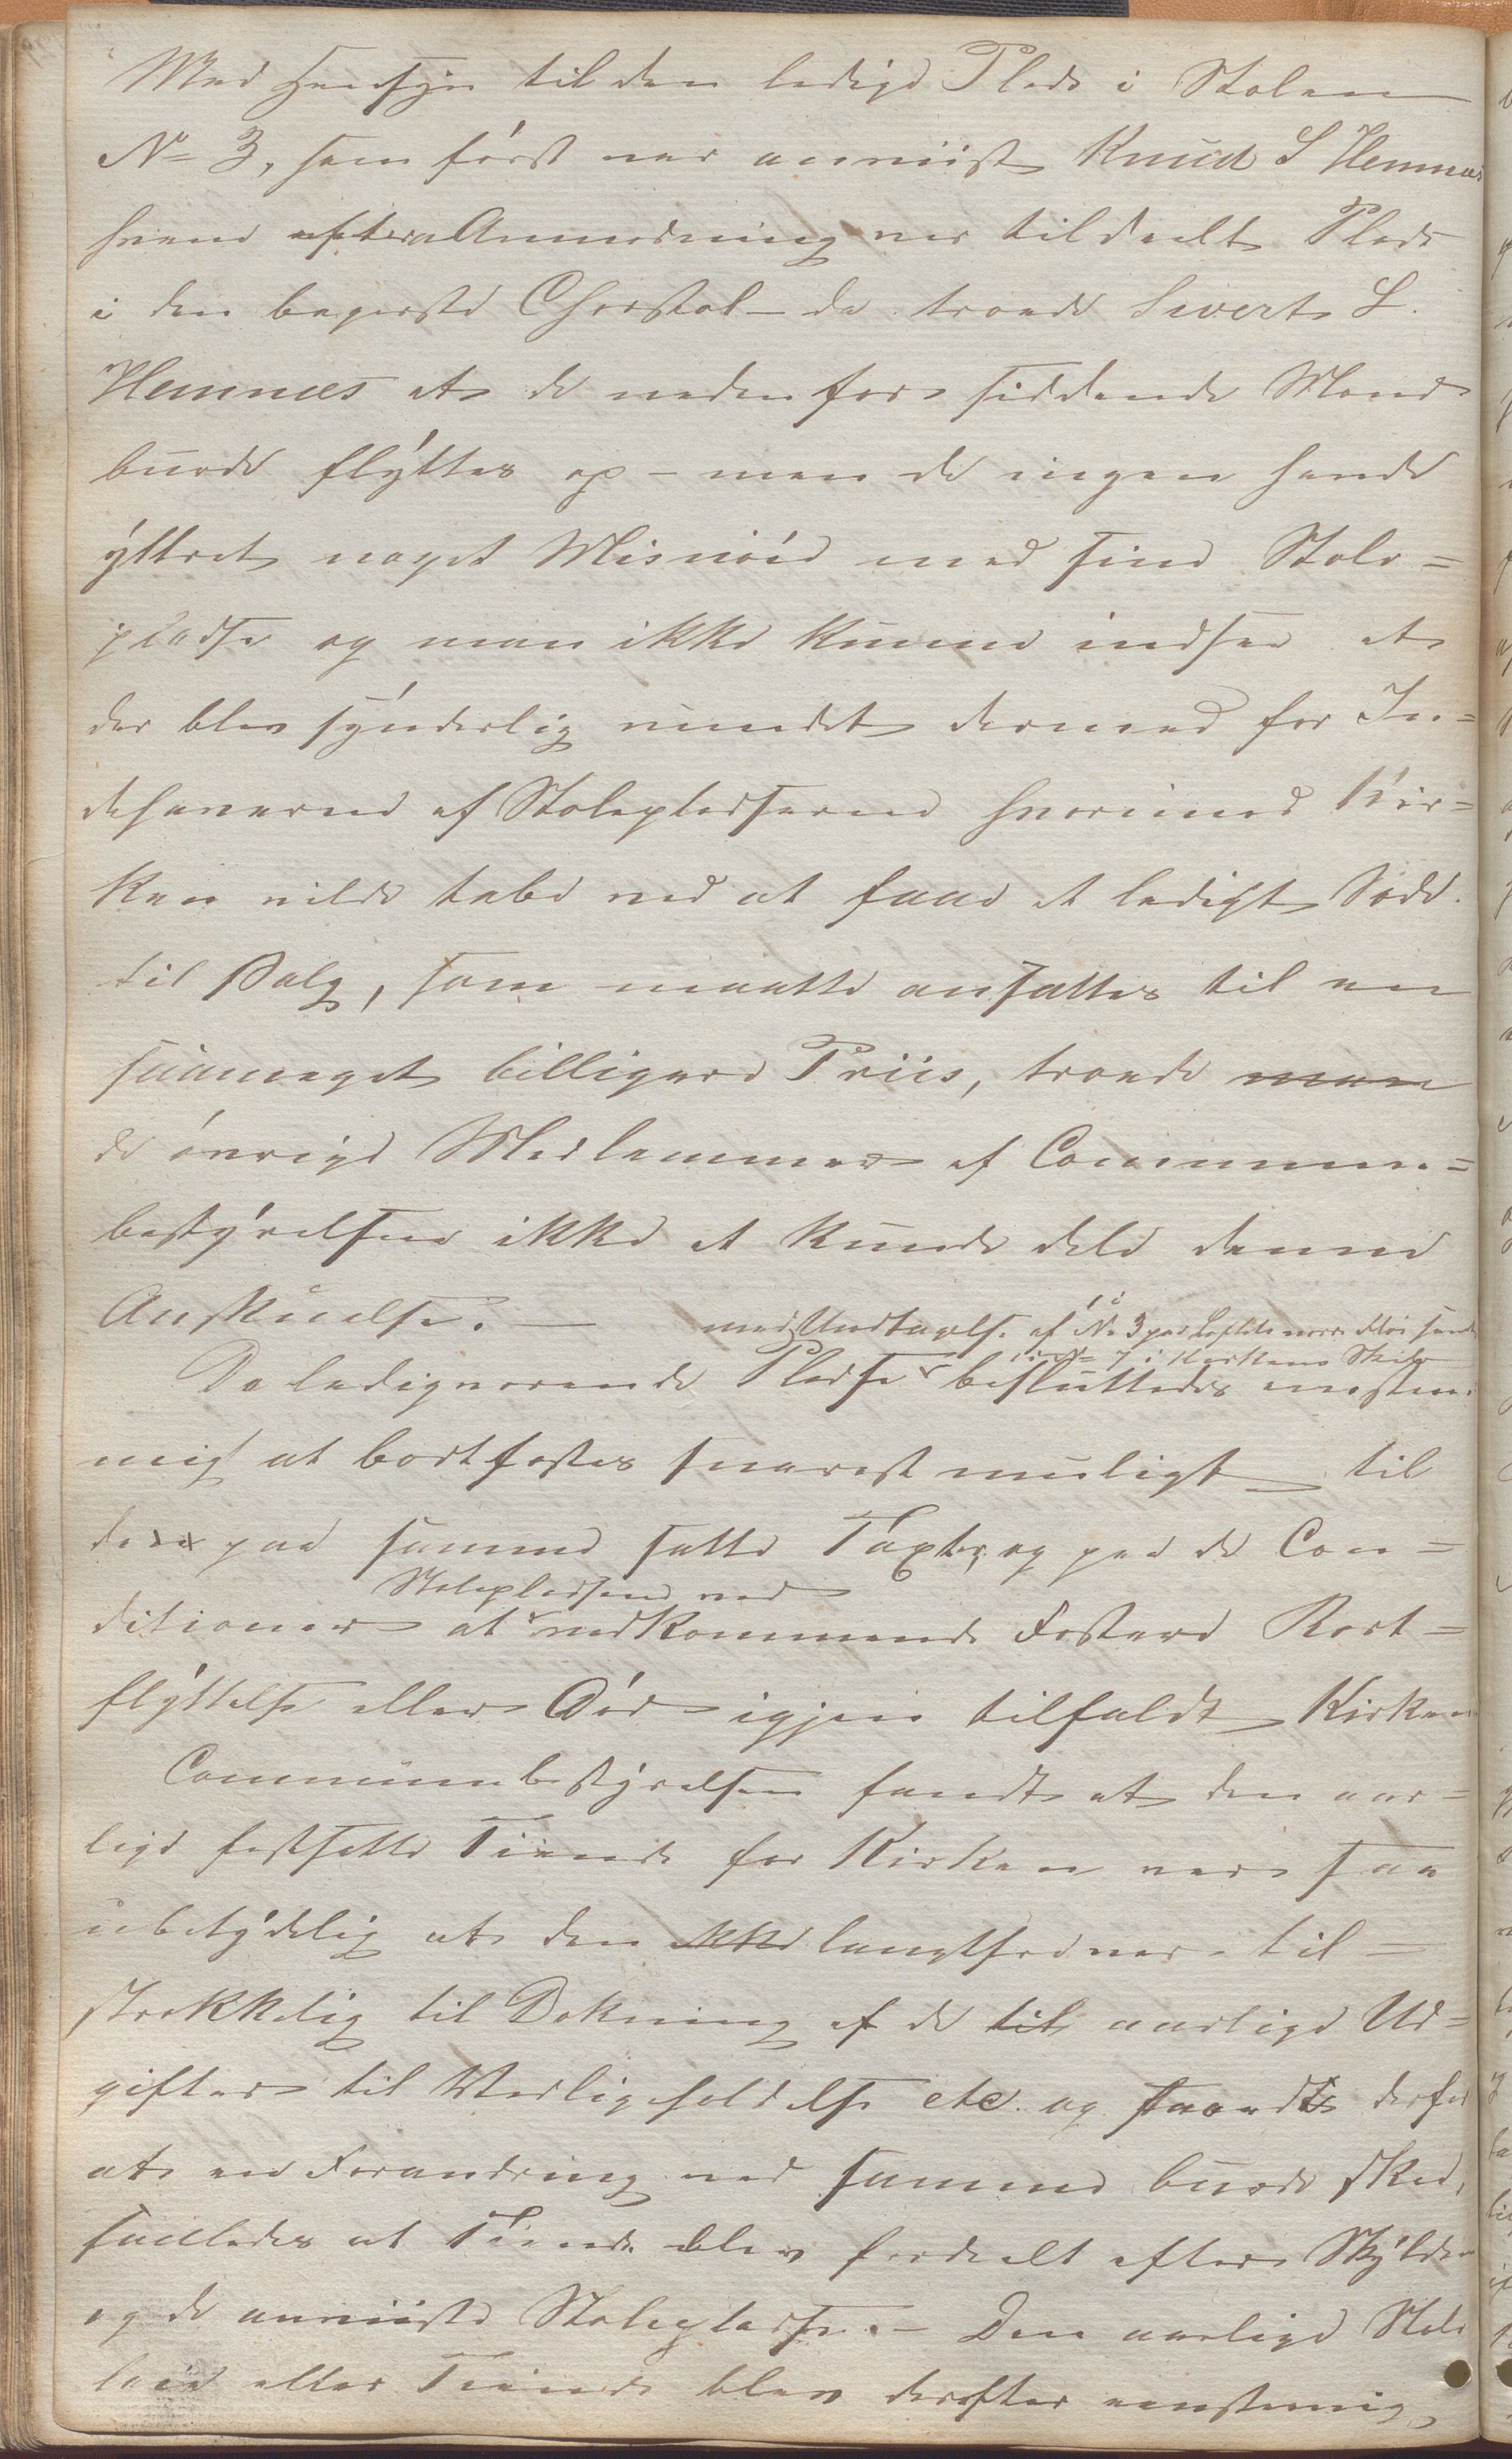 Med Hensyn til den ledige Plads i Stolen
No 3, som først var anviist Knud S Hennæs
hvem efter Anmodning var tildeelt Plads
i den begjerte Chorstol – da troede Sivert L.
Hennæs at de nedenfor siddende Mænd
burde flyttes op – men da ingen havde
yttret noget Misnøie med sine Stole=
pladse og man ikke kunne indsee at
der blev synderlig vundet dermed for In=
dehaverne af Stolepladserne hvorimod Kir=
ken vilde tabe ved at faae et ledigt Sæde
til Salg, som maatte ansættes til en
saameget billigere Priis, troede man
de øvrige Medlemmer af Commune=
bestyrelsen ikke at kunde dele denne
Anskuelse. –
med Undtagelse af No 3 paa Loftets nordre Fløi samt
No 7 i Kirkens Skib
De ledigværende Pladse besluttedes eenstem=
mig at bortfæstes snarest muligt til
den paa samme satte Taxter, og paa de Con=
Stolepladsene ved
ditioner at vedkommende Fæstere Bort=
flyttelse eller Død igjen tilfaldt Kirken
Communebestyrelsen fandt at den aar=
lige fastsatte Tiende for Kirken var saa
ubetydelig at den ikke langtfra var til=
strekkelig til Dekning af de til aarlige Ud=
gifter til Vedligeholdelse etc. og troede derfor
at en Forandring ved samme burde skee,
saaledes at Tiende blev fordeelt efter Skylden
og de anviiste Stolepladse. – Den aarlige Stole
leie eller Tiende blev derefter eenstemmig